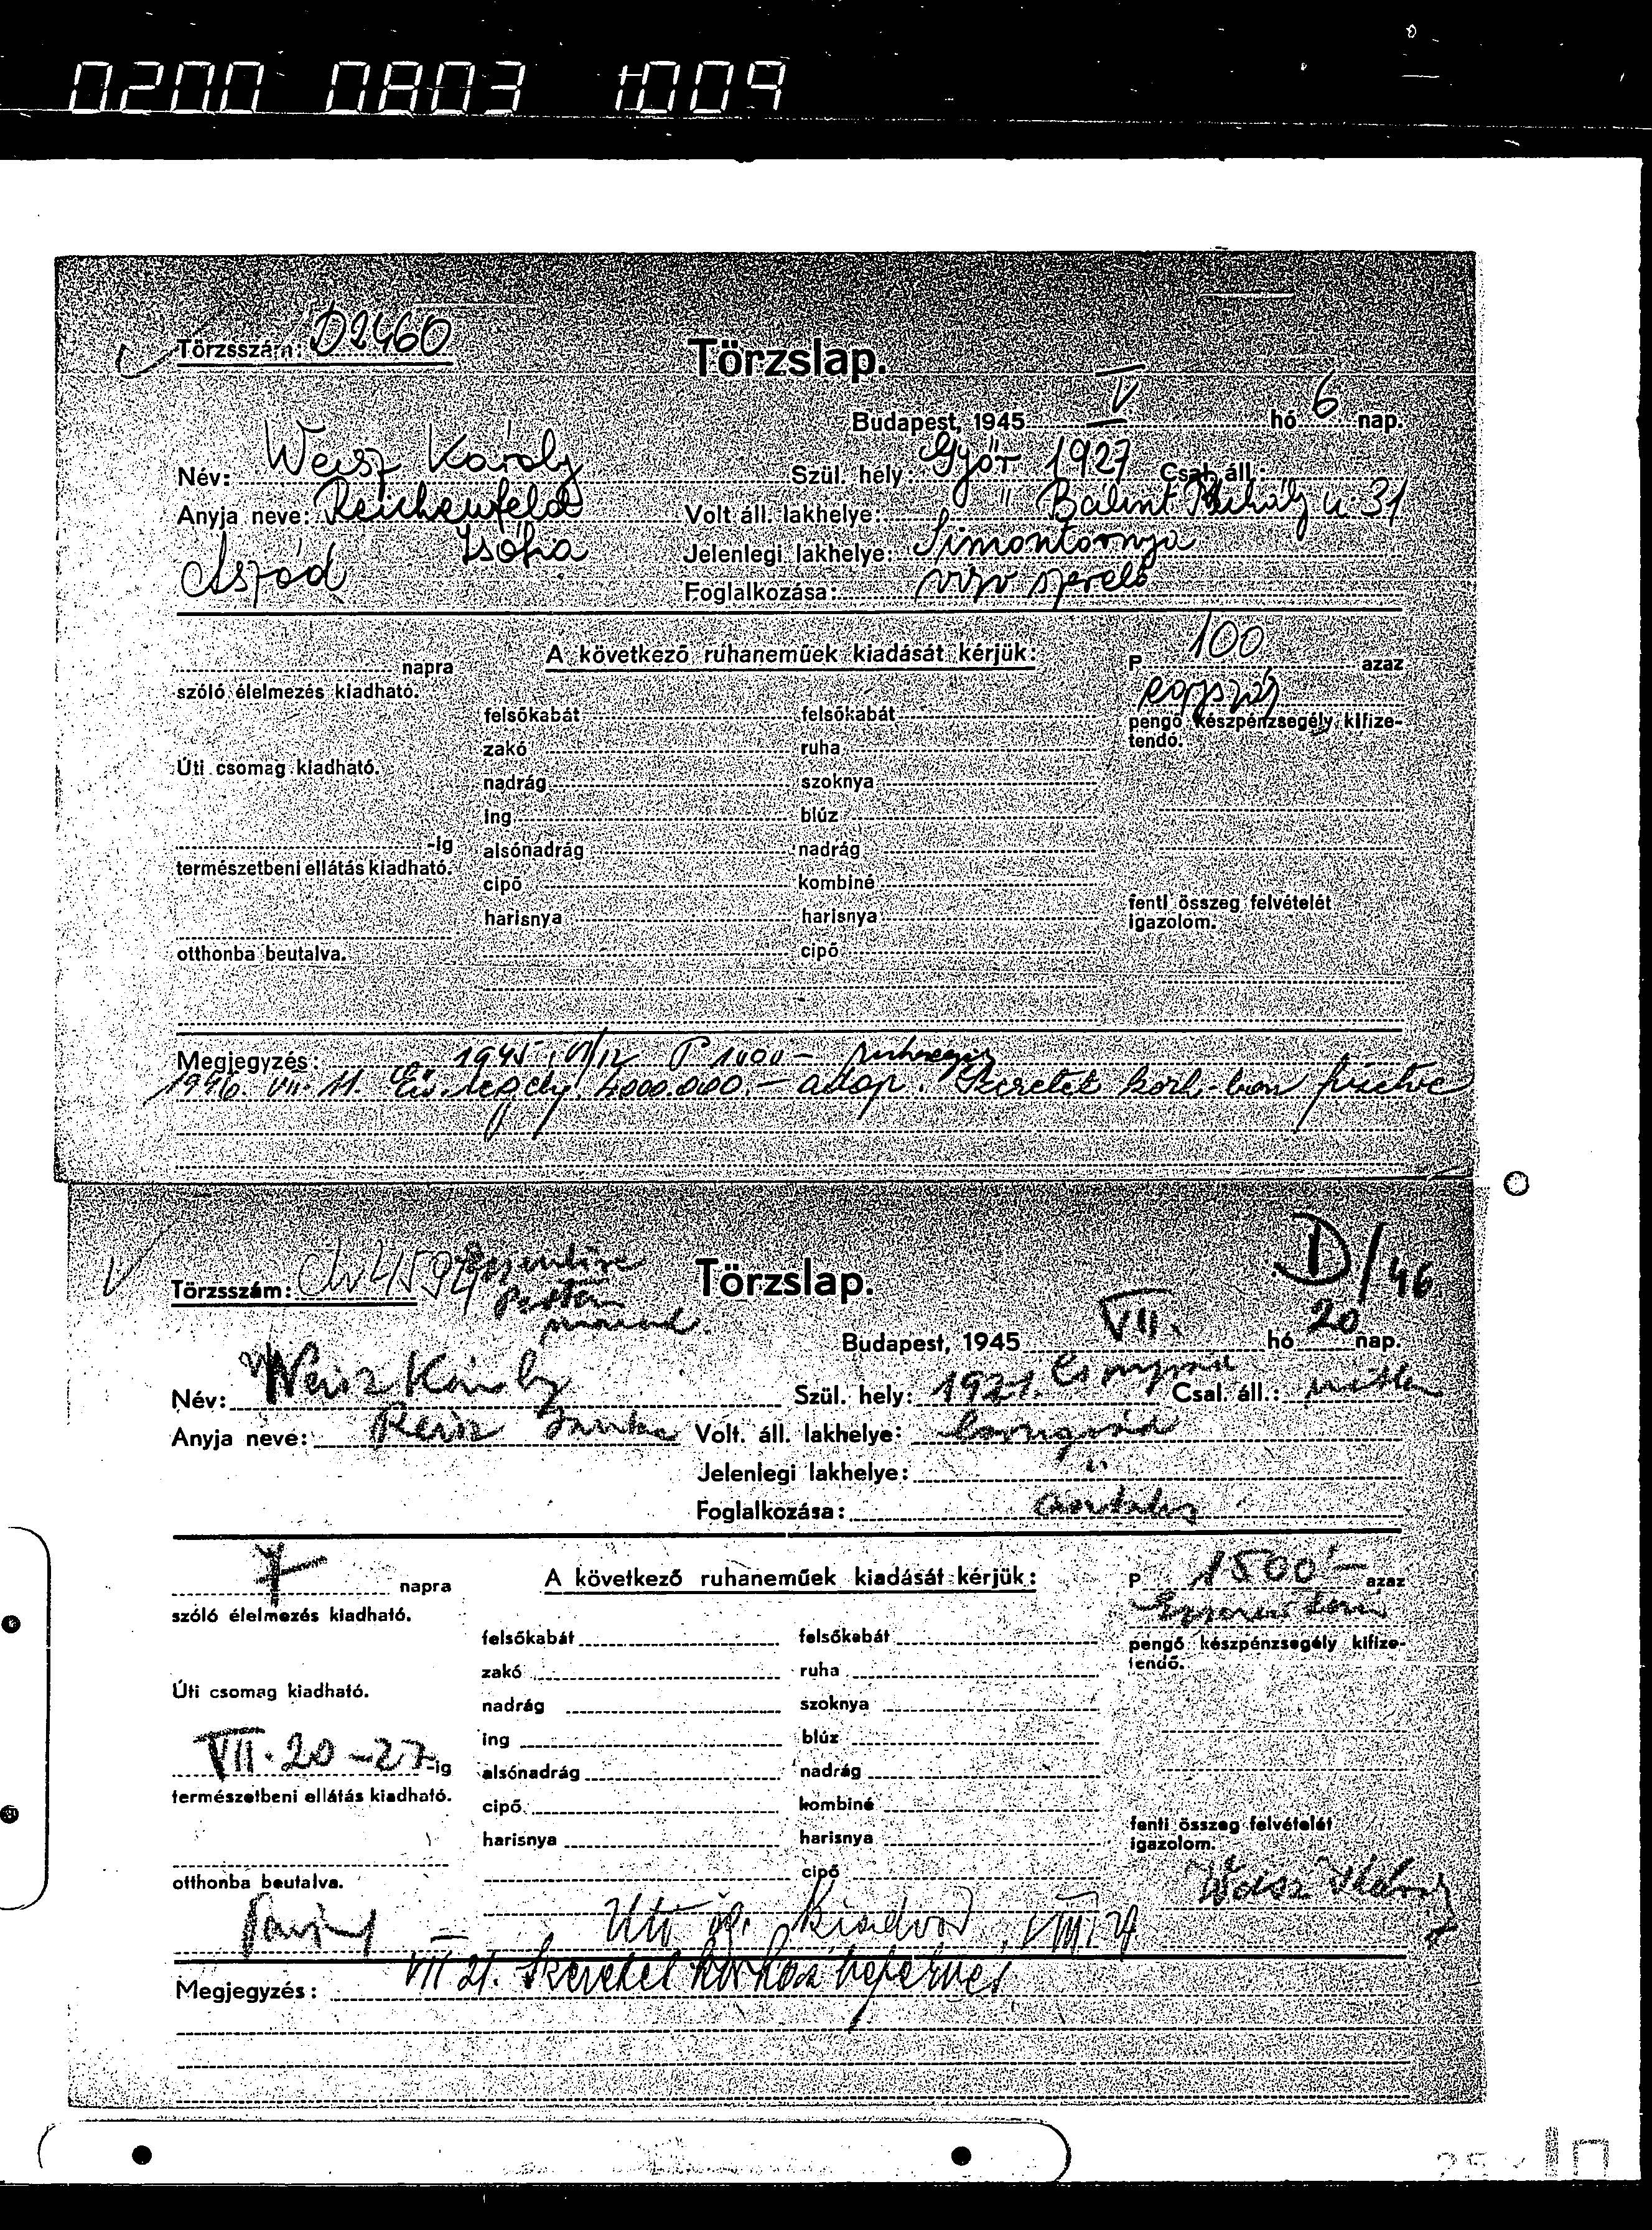 0200 0803 1009
Törzsszám: D2460
Törzslap.
Budapest, 1945 V hó 6 nap.
Név: Weisz Károly Szül. hely: Győr 1927 Csal. áll.:
Anyja neve: Reichenfeld Volt áll. lakhelye: " Bálint Mihály u. 31
Zsófia Jelenlegi lakhelye: Simontornya
Aszód Foglalkozása: vízv szerelő
napra
szóló élelmezés kiadható.
Úti csomag kiadható.
-ig
természetbeni ellátás kiadható.
otthonba beutalva.
A következő ruhaneműek kiadását kérjük:
felsőkabát felsőkabát
zakó ruha
nadrág szoknya
ing blúz
alsónadrág nadrág
cipő kombiné
harisnya harisnya
cipő
P 100 azaz
egyszáz
pengő készpénzsegély kifize-
tendő.
fenti összeg felvételét
igazolom.
Megjegyzés: 1945 VI/12 P 1000 –
1946. VII. 11. 4000.000.– adop. Szeretet kórh.-ban fizetve
Törzsszám:
Törzslap.
D/46
Budapest, 1945 VII. hó 20 nap.
Név: Weisz Károly Szül. hely: 1921. Csal. áll.:
Anyja neve: Reisz Volt. áll. lakhelye:
Jelenlegi lakhelye: "
Foglalkozása: asztalos
7 napra
szóló élelmezés kiadható.
Úti csomag kiadható.
VII. 20 - 27-ig
természetbeni ellátás kiadható.
otthonba beutalva.
A következő ruhaneműek kiadását kérjük:
felsőkabát felsőkabát
zakó ruha
nadrág szoknya
ing blúz
alsónadrág nadrág
cipő kombiné
harisnya harisnya
cipő
P 1500'– azaz
pengő készpénzsegély kifize-
tendő.
fenti összeg felvételét
igazolom.
Weisz Károly
Uti kiadva
Megjegyzés: VII 21. Szeretet kórház